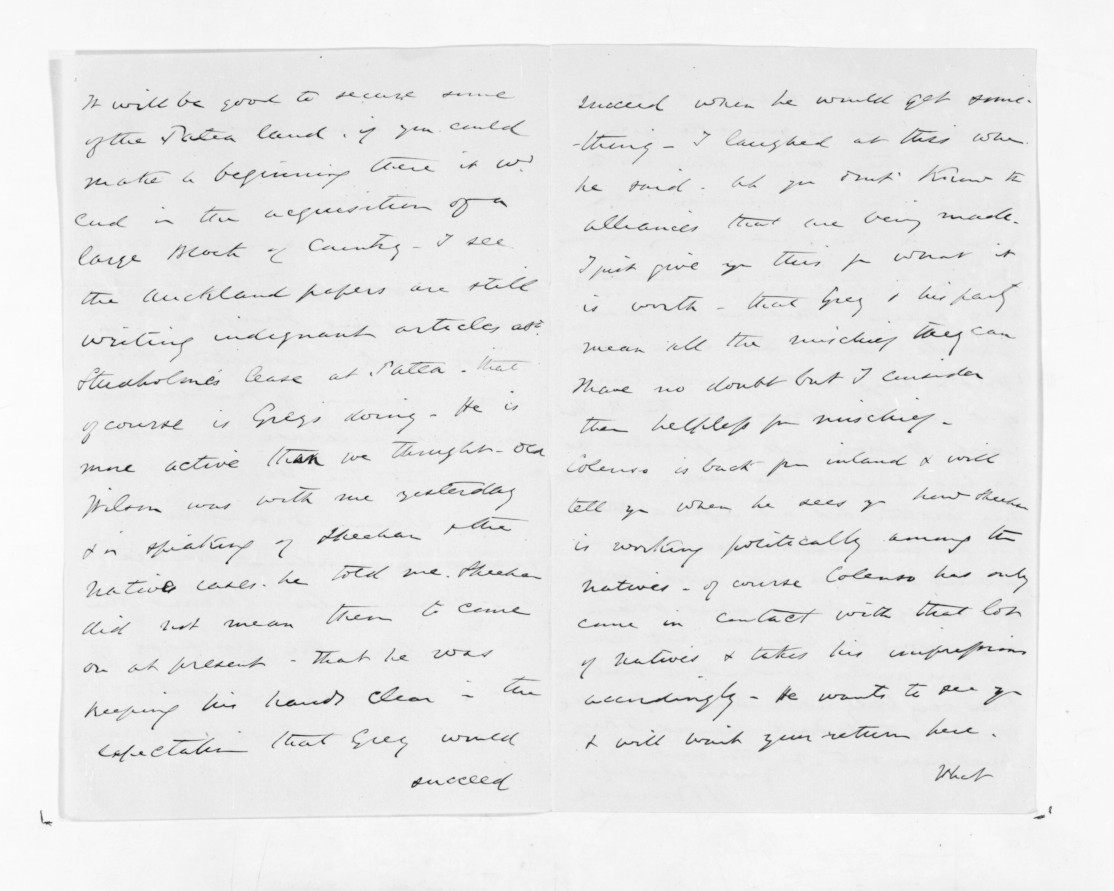 It will be good to secure some
of the Patea land. if you could
make a beginning there it wd
end in the acquisition of a
large Block of Country - I see
the Auckland papers are still
writing indignant articles abt
Studholme's lease at Patea - that
of course is Grey's doing - He is
more active than we thought - Old
Wilson was with me yesterday
& in speaking of Sheehan & the
Native cases. he told me. Sheehan
did not mean them to come
on at present - that he was
keeping his hands clear in the
expectation that Grey would
succeed
succeed when he would get some-
-thing - I laughed at this when
he said. ah you dont know the
alliances that are being made.
I just give you this for what it
is worth - that Grey & his party
mean all the mischief they can
I have no doubt but I consider
them helpless for mischief -
Colenso is back from inland & will
tell you when he sees you how Sheehan
is working politically among the
natives - of course Colenso has only
come in contact with that lot
of Natives & takes his impressions
accordingly - He wants to see you
& will wait your return here.
What